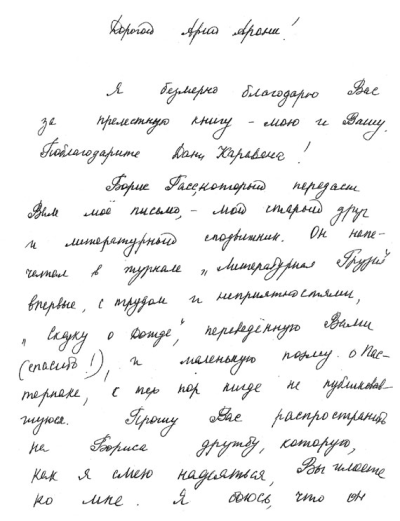 Дорогой Арго Арони!
Я безмерно благодарю Вас
за прелестную книгу – мою и Вашу.
Поблагодарите Дани Каравана!
Борис Гасс, который передаст
Вам моё письмо, – мой старый друг
и литературный сподвижник. Он напе-
чатал в журнале „Литературная Грузия"
впервые, с трудом и неприятностями,
„Сказку о Дожде", переведённую Вами
(спасибо!), и маленькую поэму о Пас-
тернаке, с тех пор нигде не публиковав-
шуюся. Прошу Вас распространить
на Бориса дружбу, которую,
как я смею надеяться, Вы имеете
ко мне. Я боюсь, что он